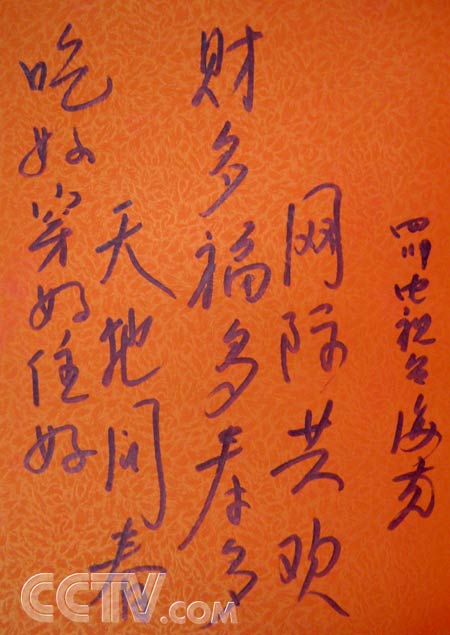 四川电视台海
网际共欢
财多福多寿多
天地同春
吃好穿好住好
CCTV.com